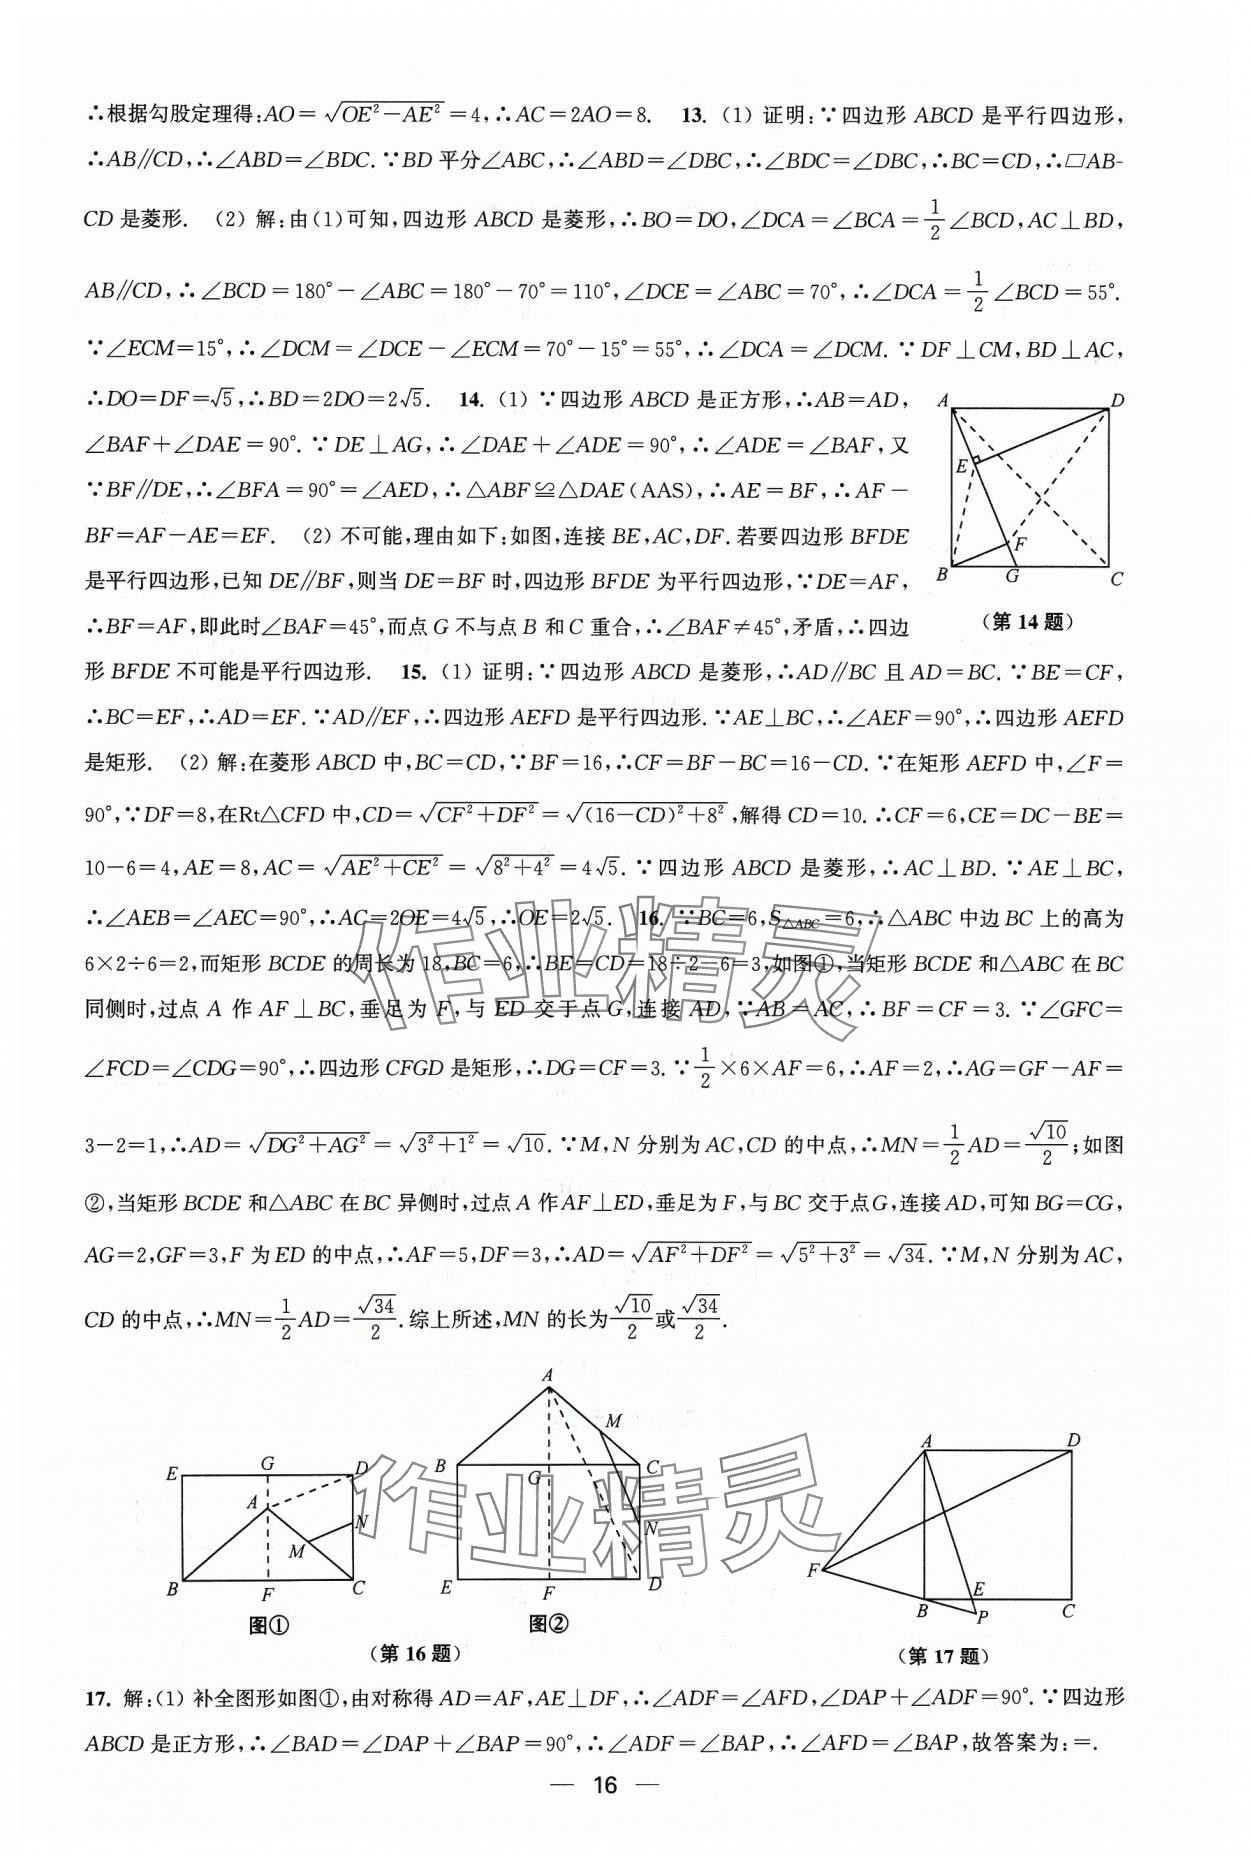 ∴根据勾股定理得:AO=√(OE²-AE²)=4,∴AC=2AO=8. 13.(1)证明:∵四边形 ABCD 是平行四边形,
∴AB∥CD,∴∠ABD=∠BDC.∵BD 平分∠ABC,∴∠ABD=∠DBC,∴∠BDC=∠DBC,∴BC=CD,∴□AB-
CD 是菱形. (2)解:由(1)可知,四边形 ABCD 是菱形,∴BO=DO,∠DCA=∠BCA=1/2∠BCD,AC⊥BD,
AB∥CD,∴∠BCD=180°-∠ABC=180°-70°=110°,∠DCE=∠ABC=70°,∴∠DCA=1/2∠BCD=55°.
∵∠ECM=15°,∴∠DCM=∠DCE-∠ECM=70°-15°=55°,∴∠DCA=∠DCM.∵DF⊥CM,BD⊥AC,
∴DO=DF=√5,∴BD=2DO=2√5. 14.(1)∵四边形 ABCD 是正方形,∴AB=AD,
∠BAF+∠DAE=90°.∵DE⊥AG,∴∠DAE+∠ADE=90°,∴∠ADE=∠BAF,又
∵BF∥DE,∴∠BFA=90°=∠AED,∴△ABF≌△DAE(AAS),∴AE=BF,∴AF-
BF=AF-AE=EF. (2)不可能,理由如下:如图,连接 BE,AC,DF.若要四边形 BFDE
是平行四边形,已知 DE∥BF,则当 DE=BF 时,四边形 BFDE 为平行四边形,∵DE=AF,
∴BF=AF,即此时∠BAF=45°,而点 G 不与点 B 和 C 重合,∴∠BAF≠45°,矛盾,∴四边
形 BFDE 不可能是平行四边形. 15.(1)证明:∵四边形 ABCD 是菱形,∴AD∥BC 且 AD=BC.∵BE=CF,
∴BC=EF,∴AD=EF.∵AD∥EF,∴四边形 AEFD 是平行四边形.∵AE⊥BC,∴∠AEF=90°,∴四边形 AEFD
是矩形. (2)解:在菱形 ABCD 中,BC=CD,∵BF=16,∴CF=BF-BC=16-CD.∵在矩形 AEFD 中,∠F=
90°,∵DF=8,在Rt△CFD 中,CD=√(CF²+DF²)=√((16-CD)²+8²),解得 CD=10.∴CF=6,CE=DC-BE=
10-6=4,AE=8,AC=√(AE²+CE²)=√(8²+4²)=4√5.∵四边形 ABCD 是菱形,∴AC⊥BD.∵AE⊥BC,
∴∠AEB=∠AEC=90°,∴AC=2OE=4√5,∴OE=2√5. 16.∵BC=6,S△ABC=6,∴△ABC 中边 BC 上的高为
6×2÷6=2,而矩形 BCDE 的周长为 18,BC=6,∴BE=CD=18÷2-6=3,如图①,当矩形 BCDE 和△ABC 在 BC
同侧时,过点 A 作 AF⊥BC,垂足为 F,与 ED 交于点 G,连接 AD,∵AB=AC,∴BF=CF=3.∵∠GFC=
∠FCD=∠CDG=90°,∴四边形 CFGD 是矩形,∴DG=CF=3.∵1/2×6×AF=6,∴AF=2,∴AG=GF-AF=
3-2=1,∴AD=√(DG²+AG²)=√(3²+1²)=√10.∵M,N 分别为 AC,CD 的中点,∴MN=1/2AD=√10/2;如图
②,当矩形 BCDE 和△ABC 在 BC 异侧时,过点 A 作 AF⊥ED,垂足为 F,与 BC 交于点 G,连接 AD,可知 BG=CG,
AG=2,GF=3,F 为 ED 的中点,∴AF=5,DF=3,∴AD=√(AF²+DF²)=√(5²+3²)=√34.∵M,N 分别为 AC,
CD 的中点,∴MN=1/2AD=√34/2.综上所述,MN 的长为√10/2或√34/2.
A D
E
F
B G C
(第 14 题)
E G D
A
N
M
B F C
图①
A
M
B G C
N
E F D
图②
(第 16 题)
A D
F
E
B P C
(第 17 题)
17. 解:(1)补全图形如图①,由对称得 AD=AF,AE⊥DF,∴∠ADF=∠AFD,∠DAP+∠ADF=90°.∵四边形
ABCD 是正方形,∴∠BAD=∠DAP+∠BAP=90°,∴∠ADF=∠BAP,∴∠AFD=∠BAP,故答案为:=.
— 16 —
作业精灵
作业精灵